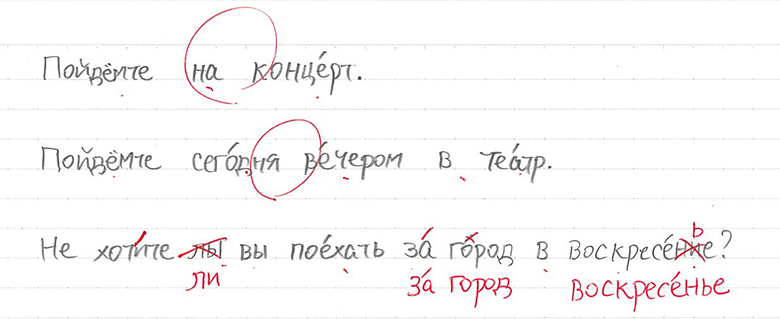 Пойдёмте на концéрт.
Пойдёмте сегóдня вéчером в теáтр.
Не хоти́те лы вы поéхать зá гóрод в воскресéние?
ь
ли зá город воскресéнье